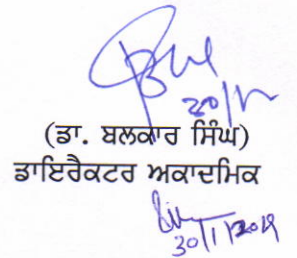 20/12
(ਡਾ. ਬਲਕਾਰ ਸਿੰਘ)
ਡਾਇਰੈਕਟਰ ਅਕਾਦਮਿਕ
30/1/2019